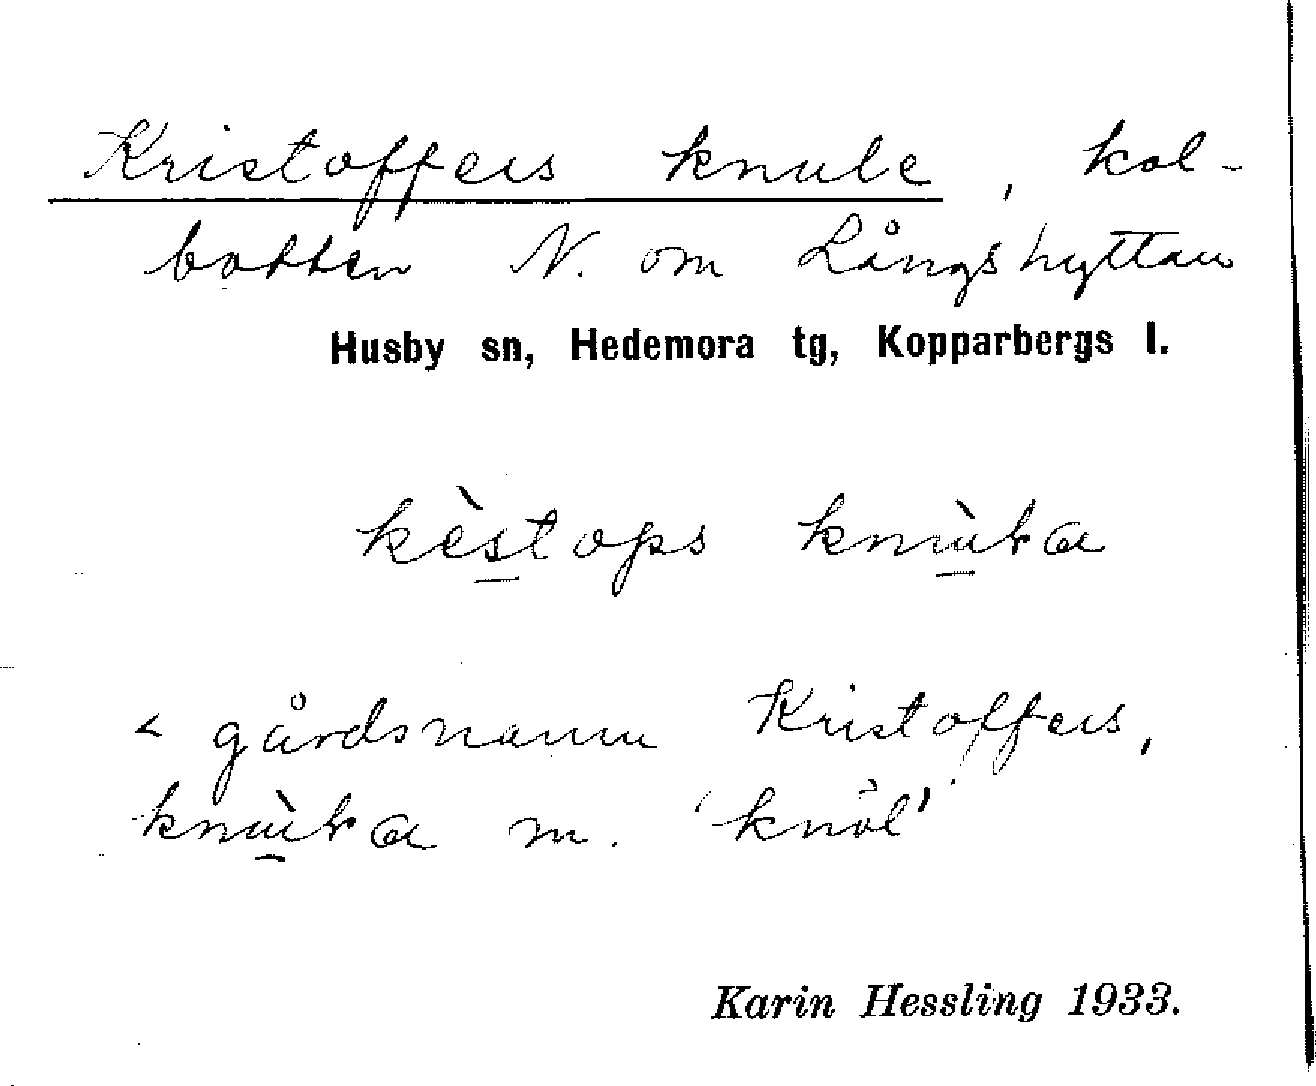 Kristoffers knule, kol-
botten N. om Långshyttan
Husby sn, Hedemora tg, Kopparbergs l.
kèstops
< gårdsnamn Kristoffers,
m. 'knöl'
Karin Hessling 1933.